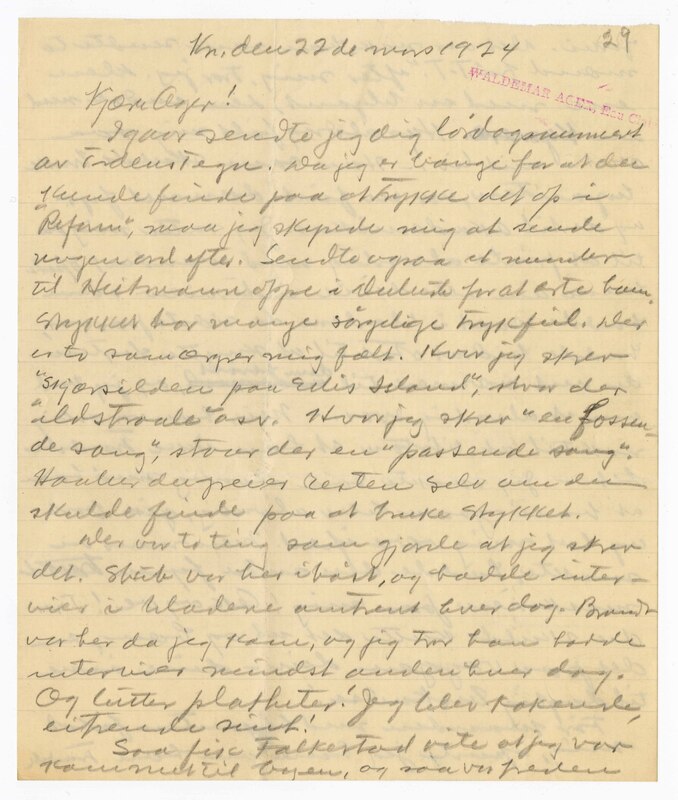 29
Kr. den 22de mars 1924
WALDEMAR AGER, Eau Cl
Kjære Ager!
Igaar sendte jeg dig lördagsnummeret
av Tidens Tegn. Da jeg er bange for at du
kunde finde paa at trykke det op i
"Reform", maa jeg skynde mig at sende
nogen ord efter. Sendte ogsaa et nummer
til Heitmann oppe i Duluth for at erte ham.
Stykket har mange sörgelige trykfeil. Der
er to som ærgrer mig fælt. Hvor jeg skrev
"Skjærsilden paa Ellis Island", staar der
"ildstraale" osv. Hvor jeg skrev "en fossen-
de sang", staar der en "passende sang".
Haaber du greier resten selv om du
skulde finde paa at bruke stykket.
Der var to ting som gjorde at jeg skrev
det. Stub var her ihöst, og hadde inter-
vier i bladene omtrent hver dag. Brandt
var her da jeg kom, og jeg tror han hadde
intervier mindst anden hver dag.
Og bitter platheter! Jeg blev kokende,
eitrende sint!
Saa fik Falkestad vite at jeg var
kommet til byen, og saa var freden